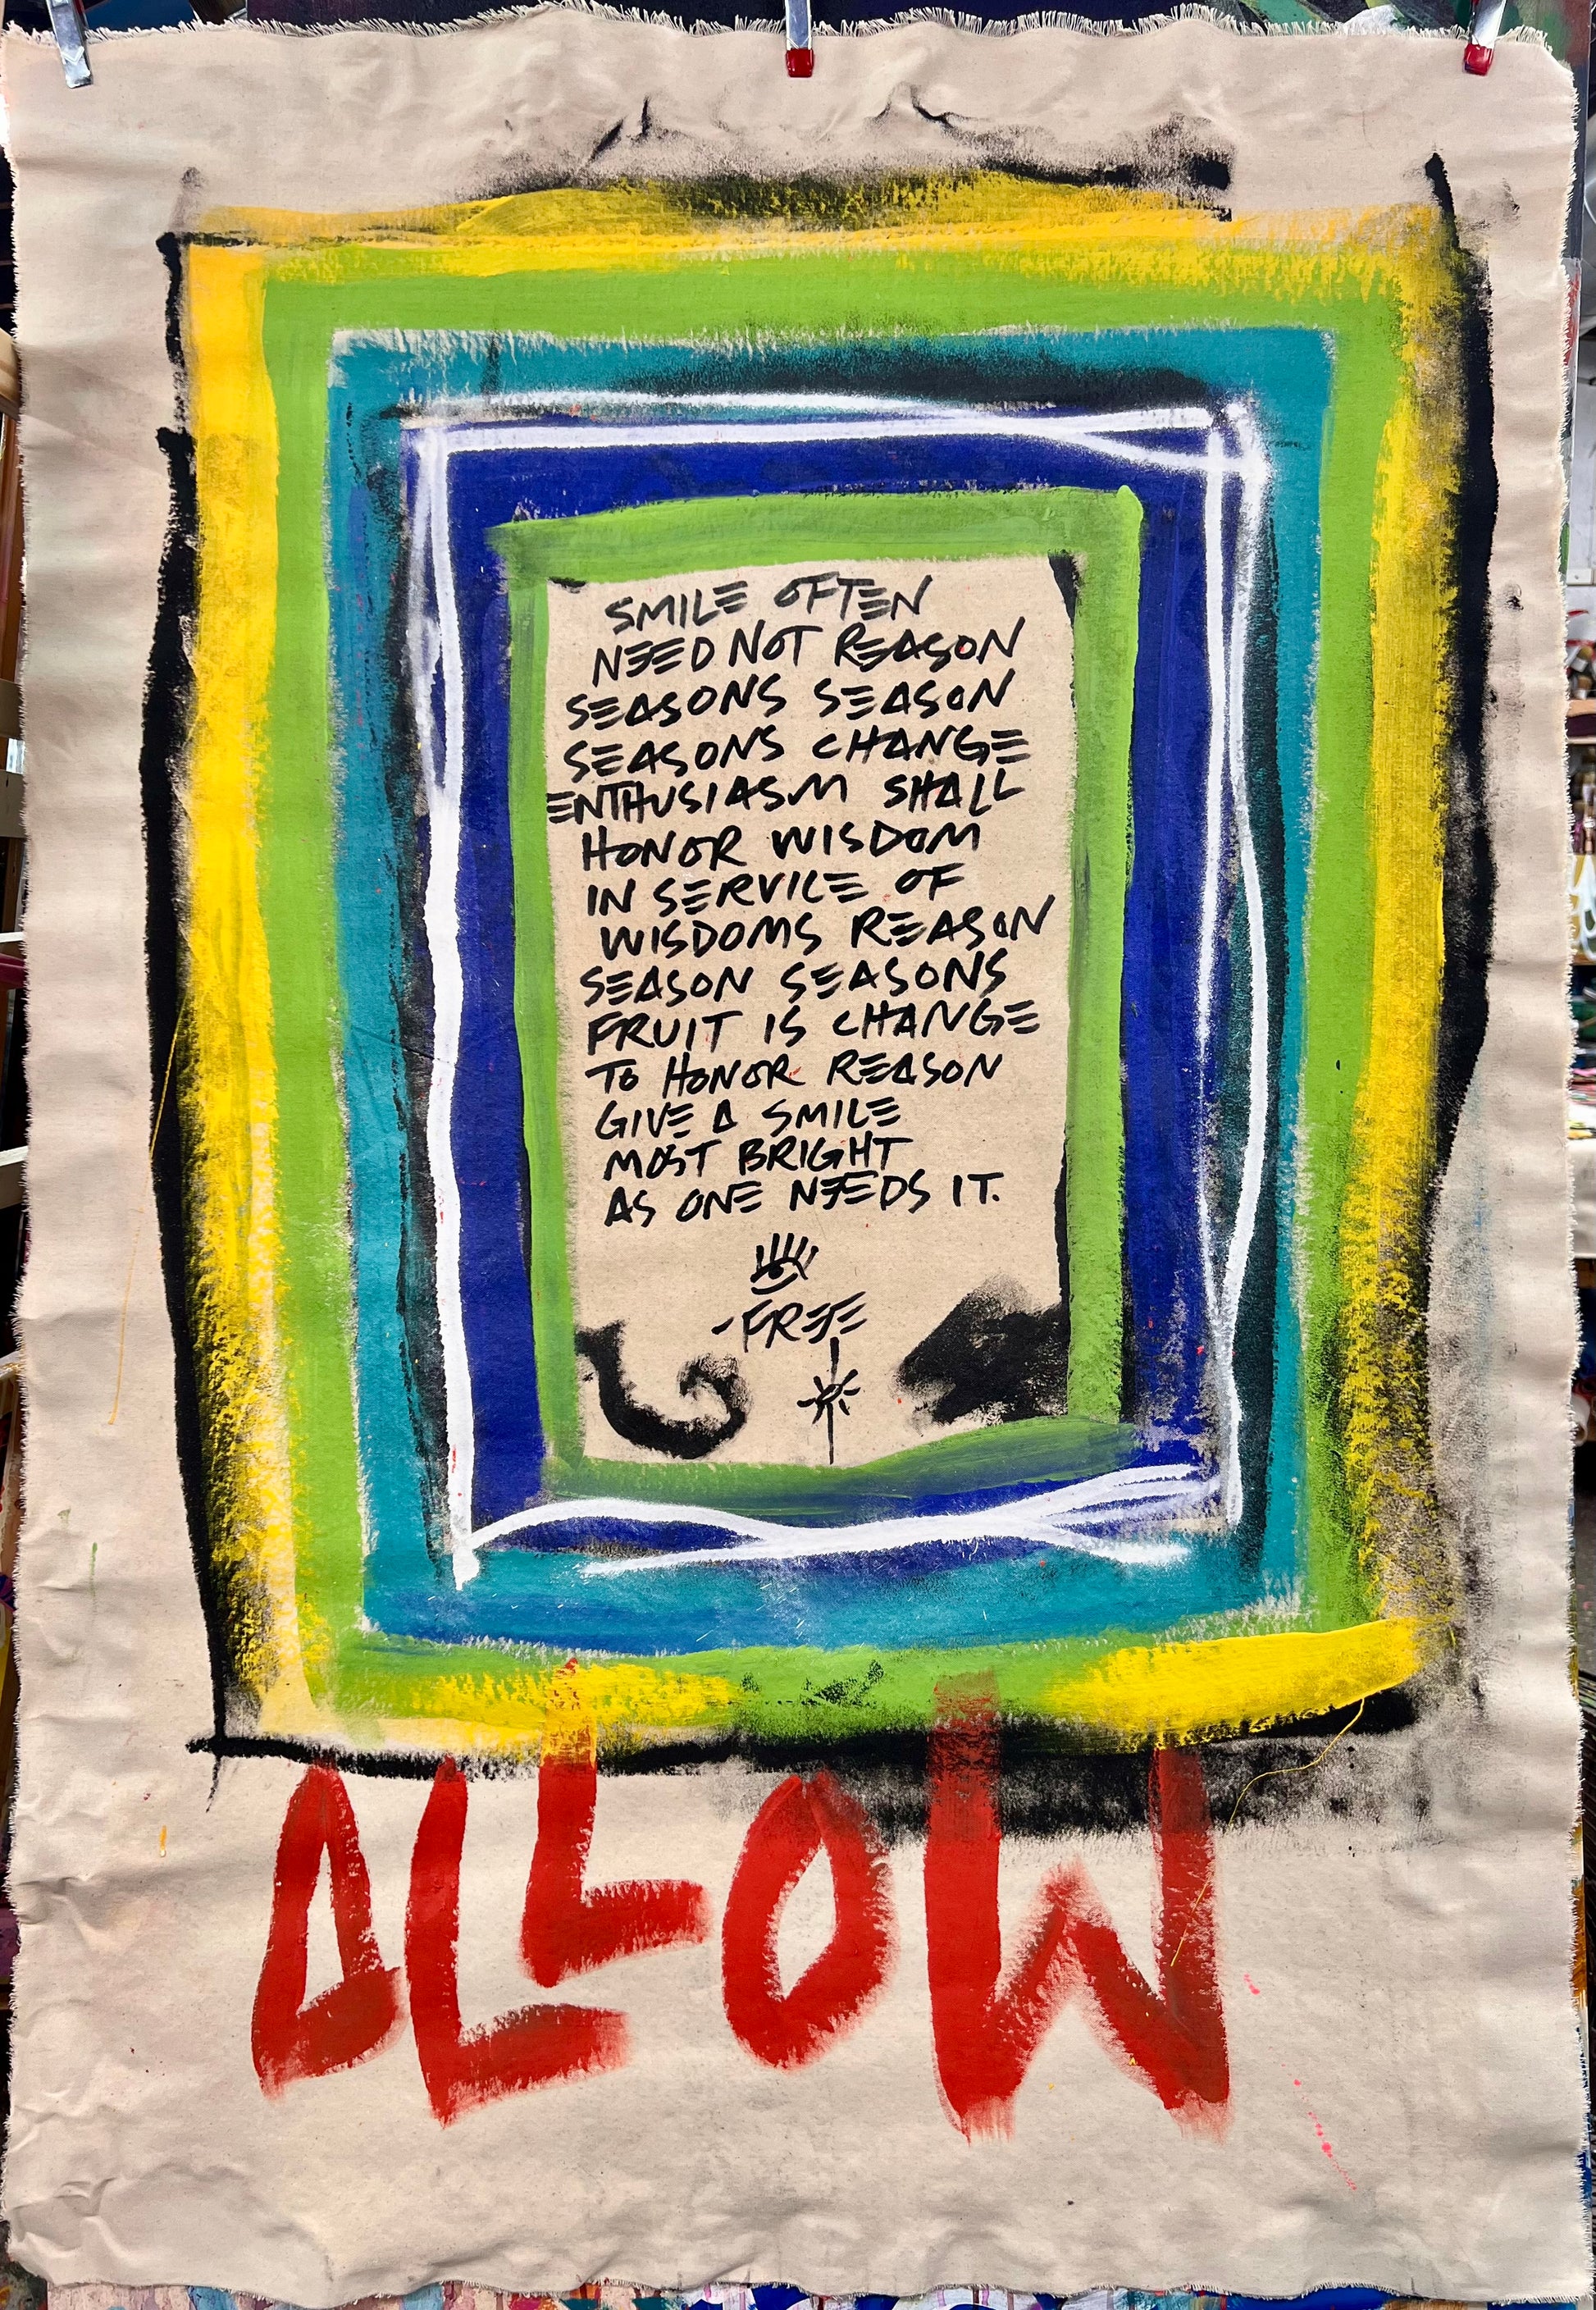 SMILE OFTEN
NEED NOT REASON
SEASONS SEASON
SEASONS CHANGE
ENTHUSIASM SHALL
HONOR WISDOM
IN SERVICE OF
WISDOMS REASON
SEASON SEASONS
FRUIT IS CHANGE
TO HONOR REASON
GIVE A SMILE
MOST BRIGHT
AS ONE NEEDS IT.
-FREE
ALLOW